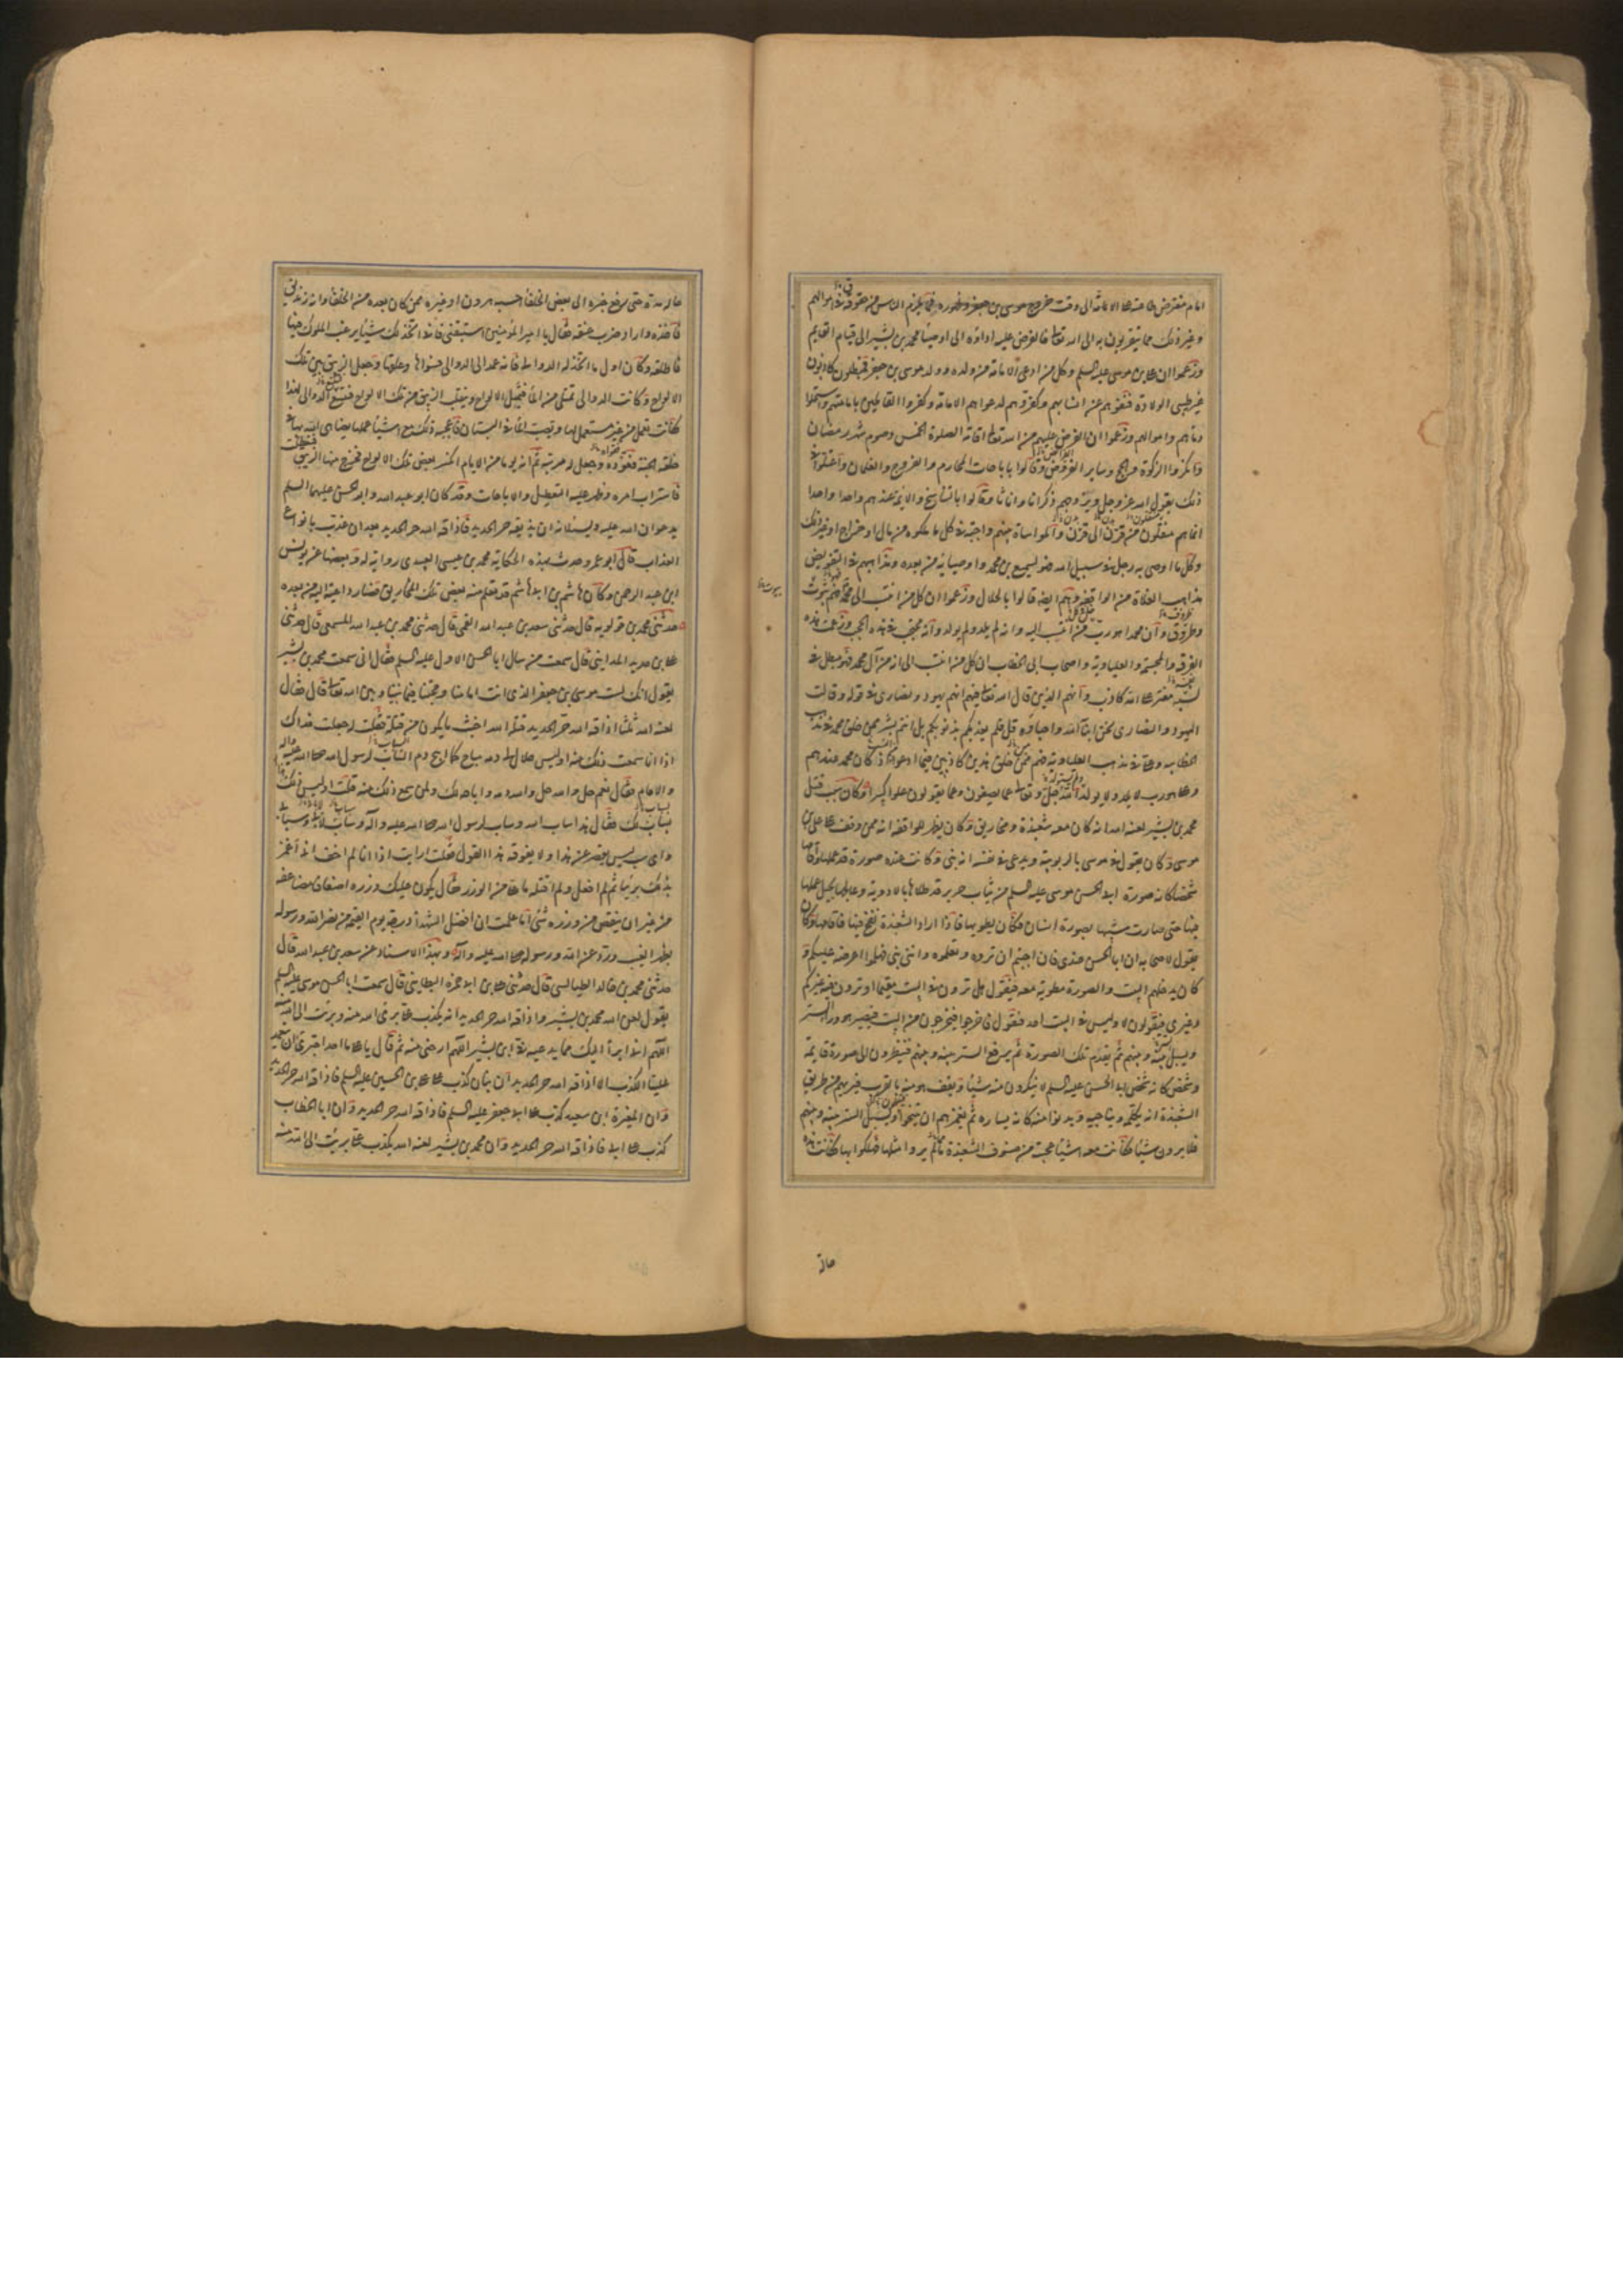 امام مفترض طاعته على الامة الى وقت خروج موسى بن جعفر وظهوره فما يلزم الناس من حقوق فى اموالهم
وغير ذلك مما يتقربون به الى الله تعالى فالفرض عليه اداؤه الى اوصياء محمد بن بشير الى قيام القايم
وزعموا ان على بن موسى عليه السلم وكل من ادعى الامامة من ولده وولد موسى بن جعفر فمبطلون كاذبون
غير طيبى الولادة فنفوهم عن انسابهم وكفروهم لدعواهم الامامة وكفروا القائلين بامامتهم واستحلوا
دماهم واموالهم وزعموا ان الفرض عليهم من الله تعالى اقامة الصلوة الخمس وصوم شهر رمضان
وانكروا الزكوة والحج وساير الفرائض وقالوا باباحات المحارم والفروج والغلمان واعتلوا فى
ذلك بقول الله عز وجل ويزوجهم ذكرانا واناثا وقالوا بالتناسخ والائمة عندهم واحدا واحدا
انما هم منتقلون من قرن الى قرن والمواساة بينهم واجبة فى كل ما ملكوه من مال او خراج او غير ذلك
وكل ما اوصى به رجل فى سبيل الله فهو لسميع بن محمد واوصيائه من بعده ومذاهبهم فى التفويض
مذاهب الغلاة من الواقفة وهم ايضا قالوا بالحلال وزعموا ان كل من انتسب الى محمد فهم بيوت
وظروف وان محمدا هو رب من انتسب اليه وانه لم يلد ولم يولد وانه محتجب فى هذه الحجب وزعمت هذه
الفرقة والمجسمة والعلياوية واصحاب ابى الخطاب ان كل من انتسب الى انه من آل محمد فهو مبطل فى
نسبه مفتر على الله كاذب وانهم الذين قال الله تعالى فيهم انهم يهود ونصارى فى قوله وقالت
اليهود والنصارى نحن ابناء الله واحباؤه قل فلم يعذبكم بذنوبكم بل انتم بشر ممن خلق محمد فى مذهب
الخطابية وعلى فى مذهب العلياوية فهم ممن خلق هذين كاذبين فيما ادعوا اذ كان محمد عندهم
وعلى هو رب لا يلد ولا يولد الله جل وتعالى عما يصفون وعما يقولون علوا كبيرا وكان سبب قتل
محمد بن بشير لعنه الله انه كان معه شعبذة ومخاريق وكان يظهر للواقفة انه ممن وقف على على بن
موسى وكان يقول فى موسى بالربوبية ويدعى فى نفسه انه نبى وكانت عنده صورة قد عملها واقامها
شخصا كانه صورة ابى الحسن موسى عليه السلم من ثياب حرير قد طلاها بالادوية وعالجها بحيل عملها
فيها حتى صارت شبيها بصورة انسان فكان يطويها فاذا اراد الشعبذة نفخ فيها فاقامها وكان
يقول لاصحابه ان ابا الحسن عندى فان احببتم ان تروه وتعلموه وانى نبى فهلموا اعرضه عليكم و
كان يدخلهم البيت والصورة مطوية معه فيقول هل ترون فى البيت مقيما او ترون فيه غيركم
وغيرى فيقولون لا وليس فى البيت احد فيقول فاخرجوا فيخرجون من البيت فيصير هو وراء الستر
ويسبل بينه وبينهم ثم يقدم تلك الصورة ثم يرفع الستر بينه وبينهم فينظرون الى صورة قايمة
وشخص كانه شخص ابى الحسن عليه السلم لا ينكرون منه شيئا ويقف هو منه بالقرب فيريهم من طريق
الشعبذة انه يكلمه ويناجيه ويدنو منه كانه يساره ثم يغمزهم ان يتنحوا ويسبل الستر بينه وبينهم
فلا يرون شيئا وكانت معه اشياء عجيبة من صنوف الشعبذة ما لم يروا مثلها فهلكوا بها فكانت هذه
حاله
حاله مدة حتى رفع خبره الى بعض الخلفاء احسبه هرون او غيره ممن كان بعده من الخلفاء وانه زنديق
فاخذه واراد ضرب عنقه فقال يا امير المؤمنين استبقنى فانى اتخذ لك شيئا يرغب الملوك فيها
فاطلقه وكان اول ما اتخذ له الدوالى فانه عمد الى الدوالى فسواها وعلقها وجعل الزيبق بين تلك
الالواح وكانت الدوالى تمتلى من الماء فتميل الالواح وينقلب الزيبق من تلك الالواح فتتبع الدوالى لهذا
فكانت تعمل من غير مستعمل لها وتصب الماء فى البستان فاعجبه ذلك مع اشياء عملها يضاهى الله بها فى
خلقه الجنة فقوده وجعل له مرتبة ثم انه يوما من الايام انكسر بعض تلك الالواح فخرج منها الزيبق
فاستراب امره وظهر عليه التعطيل والاباحات وقد كان ابو عبد الله وابو الحسن عليهما السلم
يدعوان الله عليه ويسئلانه ان يذيقه حر الحديد فاذاقه الله حر الحديد بعد ان عذب بانواع
العذاب قال ابو عمرو وحدث بهذه الحكاية محمد بن عيسى العبيدى رواية له وبعضها عن يونس
ابن عبد الرحمن وكان هاشم بن ابى هاشم قد تعلم منه بعض تلك المخاريق فصار داعية اليه من بعده
حدثنى محمد بن قولويه قال حدثنى سعد بن عبد الله القمى قال حدثنى محمد بن عبد الله المسمعى قال حدثنى
على بن حديد المداينى قال سمعت من سال ابا الحسن الاول عليه السلم فقال انى سمعت محمد بن بشير
يقول انك لست موسى بن جعفر الذى انت امامنا وحجتنا فيما بيننا وبين الله تعالى قال فقال
لعنه الله ثلثا اذاقه الله حر الحديد قتله الله اخبث ما يكون من قتلة فقلت له جعلت فداك
اذا انا سمعت ذلك منه اوليس حلال لى دمه مباح كما ابيح دم الساب لرسول الله صلى الله عليه وآله
والامام فقال نعم حل والله حل والله دمه واباحه لك ولمن سمع ذلك منه قلت اوليس ذلك
بساب لك فقال هذا ساب الله وساب لرسول الله صلى الله عليه وآله وساب لابائى وسبانى
واى سب ليس يقصر عن هذا ولا يفوقه هذا القول فقلت ارايت اذا انا لم اخف ان اغمز
بذلك بريئا ثم لم افعل ولم اقتله ما على من الوزر فقال يكون عليك وزره اضعافا مضاعفه
من غير ان ينقص من وزره شئ اما علمت ان افضل الشهدا درجة يوم القيمة من نصر الله ورسوله
بظهر الغيب ورد عن الله ورسوله صلى الله عليه وآله وبهذا الاسناد عن سعد بن عبد الله قال
حدثنى محمد بن خالد الطيالسى قال حدثنى على بن ابى حمزة البطاينى قال سمعت ابا الحسن موسى عليه السلم
يقول لعن الله محمد بن بشير واذاقه الله حر الحديد انه يكذب على برئ الله منه وبرئت الى الله منه
اللهم انى ابرأ اليك مما يدعى فى ابن بشير اللهم ارحنى منه ثم قال يا على ما احد اجترى ان يتعمد
علينا الكذب الا اذاقه الله حر الحديد ان بنان كذب على على بن الحسين عليه السلم فاذاقه الله حر الحديد
وان المغيرة ابن سعيد كذب على ابى جعفر عليه السلم فاذاقه الله حر الحديد وان ابا الخطاب
كذب على ابى فاذاقه الله حر الحديد وان محمد بن بشير لعنه الله يكذب على برئت الى الله منه